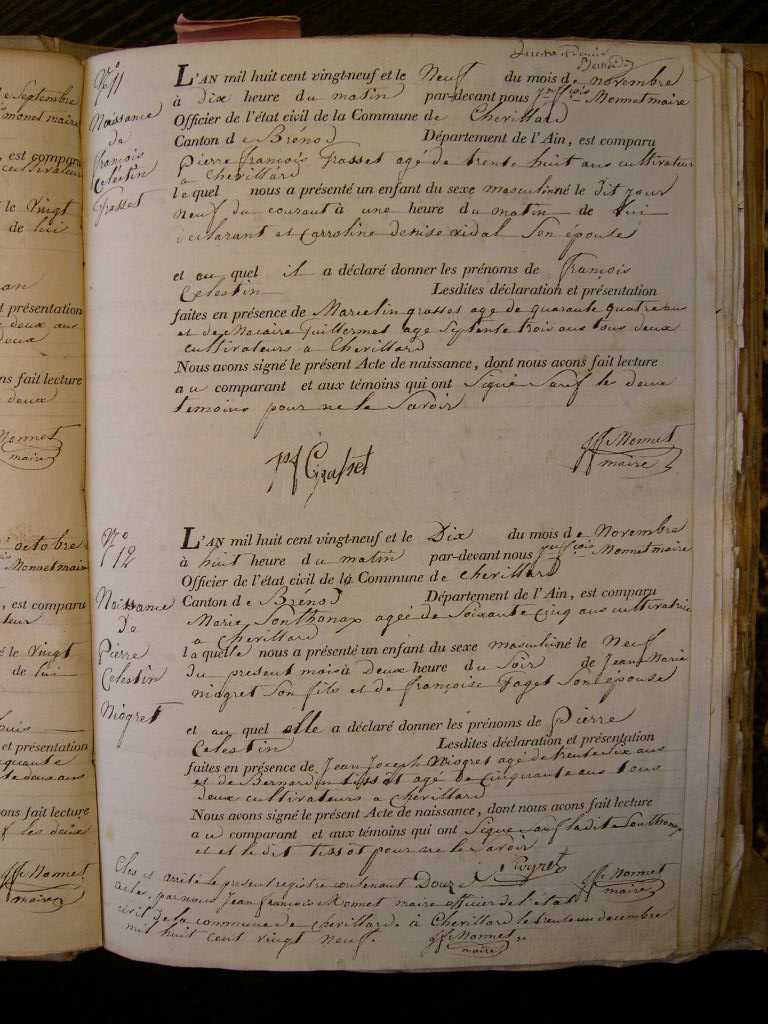 e Septembre
monet maire
, est comparu
cultivateur
le Vingt
de lui
an
t présentation
deux ans
deux
ns fait lecture
deux
Monnet
maire
octobre
Monnet maire
, est comparu
teur
é le Vingt
de lui
puis
et présentation
quante
te deux ans
ons fait lecture
t les deux
jff Monnet
maire
N° 11
Naissance
de
françois
Célestin
Grasset
L'AN mil huit cent vingt-neuf et le Neuf du mois de novembre
à dix heure du matin par-devant nous jn fçois Monnet maire
Officier de l'état civil de la Commune de Chevillard
Canton de Brénod Département de l'Ain, est comparu
Pierre françois Grasset agé de trente huit ans cultivateur
a Chevillard
le quel nous a présenté un enfant du sexe masculinné le Dit jour
neuf du courant à une heure du matin de Lui
declarant et Carroline denise vidal Son épouse
et au quel il a déclaré donner les prénoms de François
Celestin Lesdites déclaration et présentation
faites en présence de Marcelin grasset age de quarante quatre ans
et de Macaire Guillermet age Septente trois ans tous deux
cultivateurs a Chevillard
Nous avons signé le présent Acte de naissance, dont nous avons fait lecture
au comparant et aux témoins qui ont Signé Sauf les deux
temoins pour ne le Savoir
pf Grasset
jff Monnet
maire
N°
12
Naissance
De
Pierre
Celestin
Niogret
L'AN mil huit cent vingt-neuf et le Dix du mois de Novembre
à huit heure du matin par-devant nous jn fçois Monnet maire
Officier de l'état civil de la Commune de chevillard
Canton de Brénod Département de l'Ain, est comparu
Marie Sonthonax agée de Soixante Cinq ans cultivatrice
a Chevillard
la quelle nous a présenté un enfant du sexe masculiné le Neuf
du present mois à Deux heure du Soir de Jean Marie
niogret Son fils et de françoise Faget Son épouse
et au quel elle a déclaré donner les prénoms de Pierre
Celestin Lesdites déclaration et présentation
faites en présence de Jean Joseph Niogret agé de trente Six ans
et de Bernardin tissot agé de Cinquante ans tous
deux cultivateurs a Chevillard
Nous avons signé le présent Acte de naissance, dont nous avons fait lecture
au comparant et aux témoins qui ont Signé sauf la dite Sonthonax
et et le dit tissot pour ne le Savoir
jff Monnet
maire
Clos et arrété le present registre contenant Douze
actes, par nous Jean françois Monnet maire officier de l'état
civil de la commune de chevillard. à Chevillard le trente un decembre
mil huit cent vingt neuf.
jff Monnet
maire